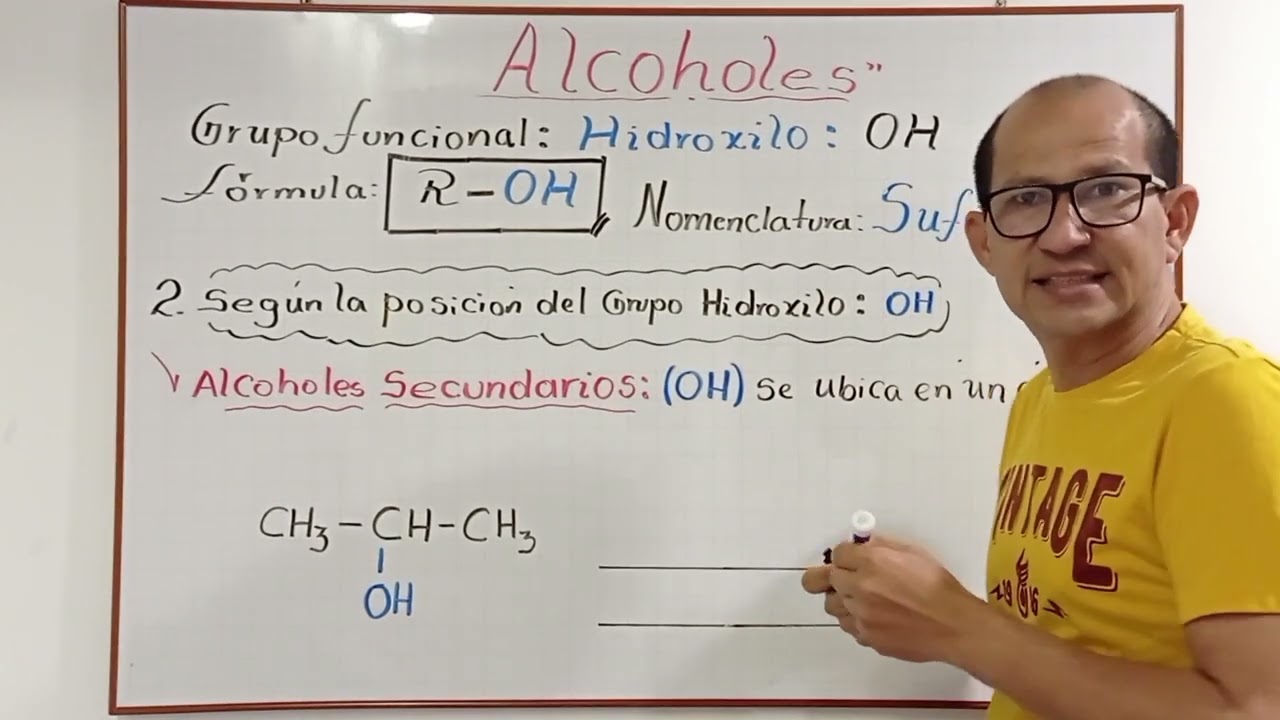 Alcoholes"
Grupo funcional: Hidroxilo: OH
fórmula: R-OH Nomenclatura: Suf
2. Según la posición del Grupo Hidroxilo: OH
Alcoholes Secundarios: (OH) se ubica en un
CH3-CH-CH3
OH
VINTAGE
1916